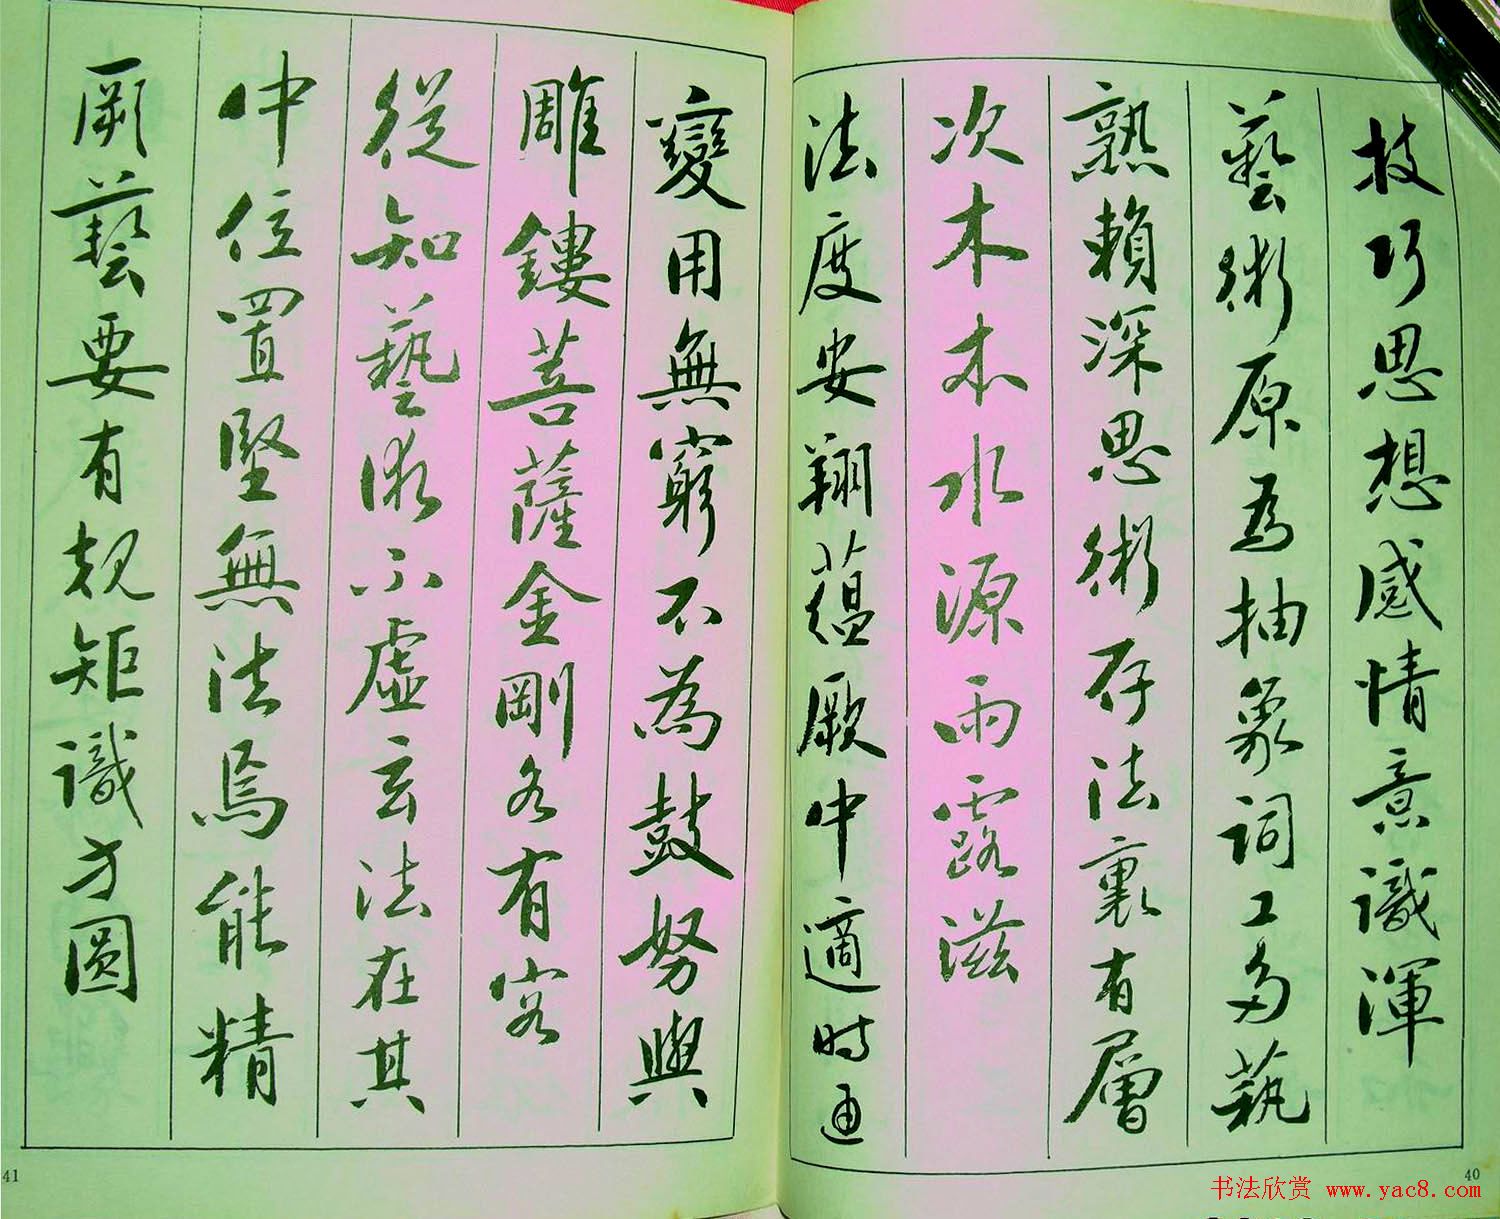 技巧思想感情意識渾
藝術原為抽象詞工多藝
熟賴深思術存法裏有層
次木本水源雨露滋
法度安翔蘊厥中適時通
變用無窮不為鼓努與
雕鏤菩薩金剛各有容
從知藝術不虛玄法在其
中位置堅無法焉能精
厥藝要有規矩識方圓
41
40
书法欣赏 www.yac8.com